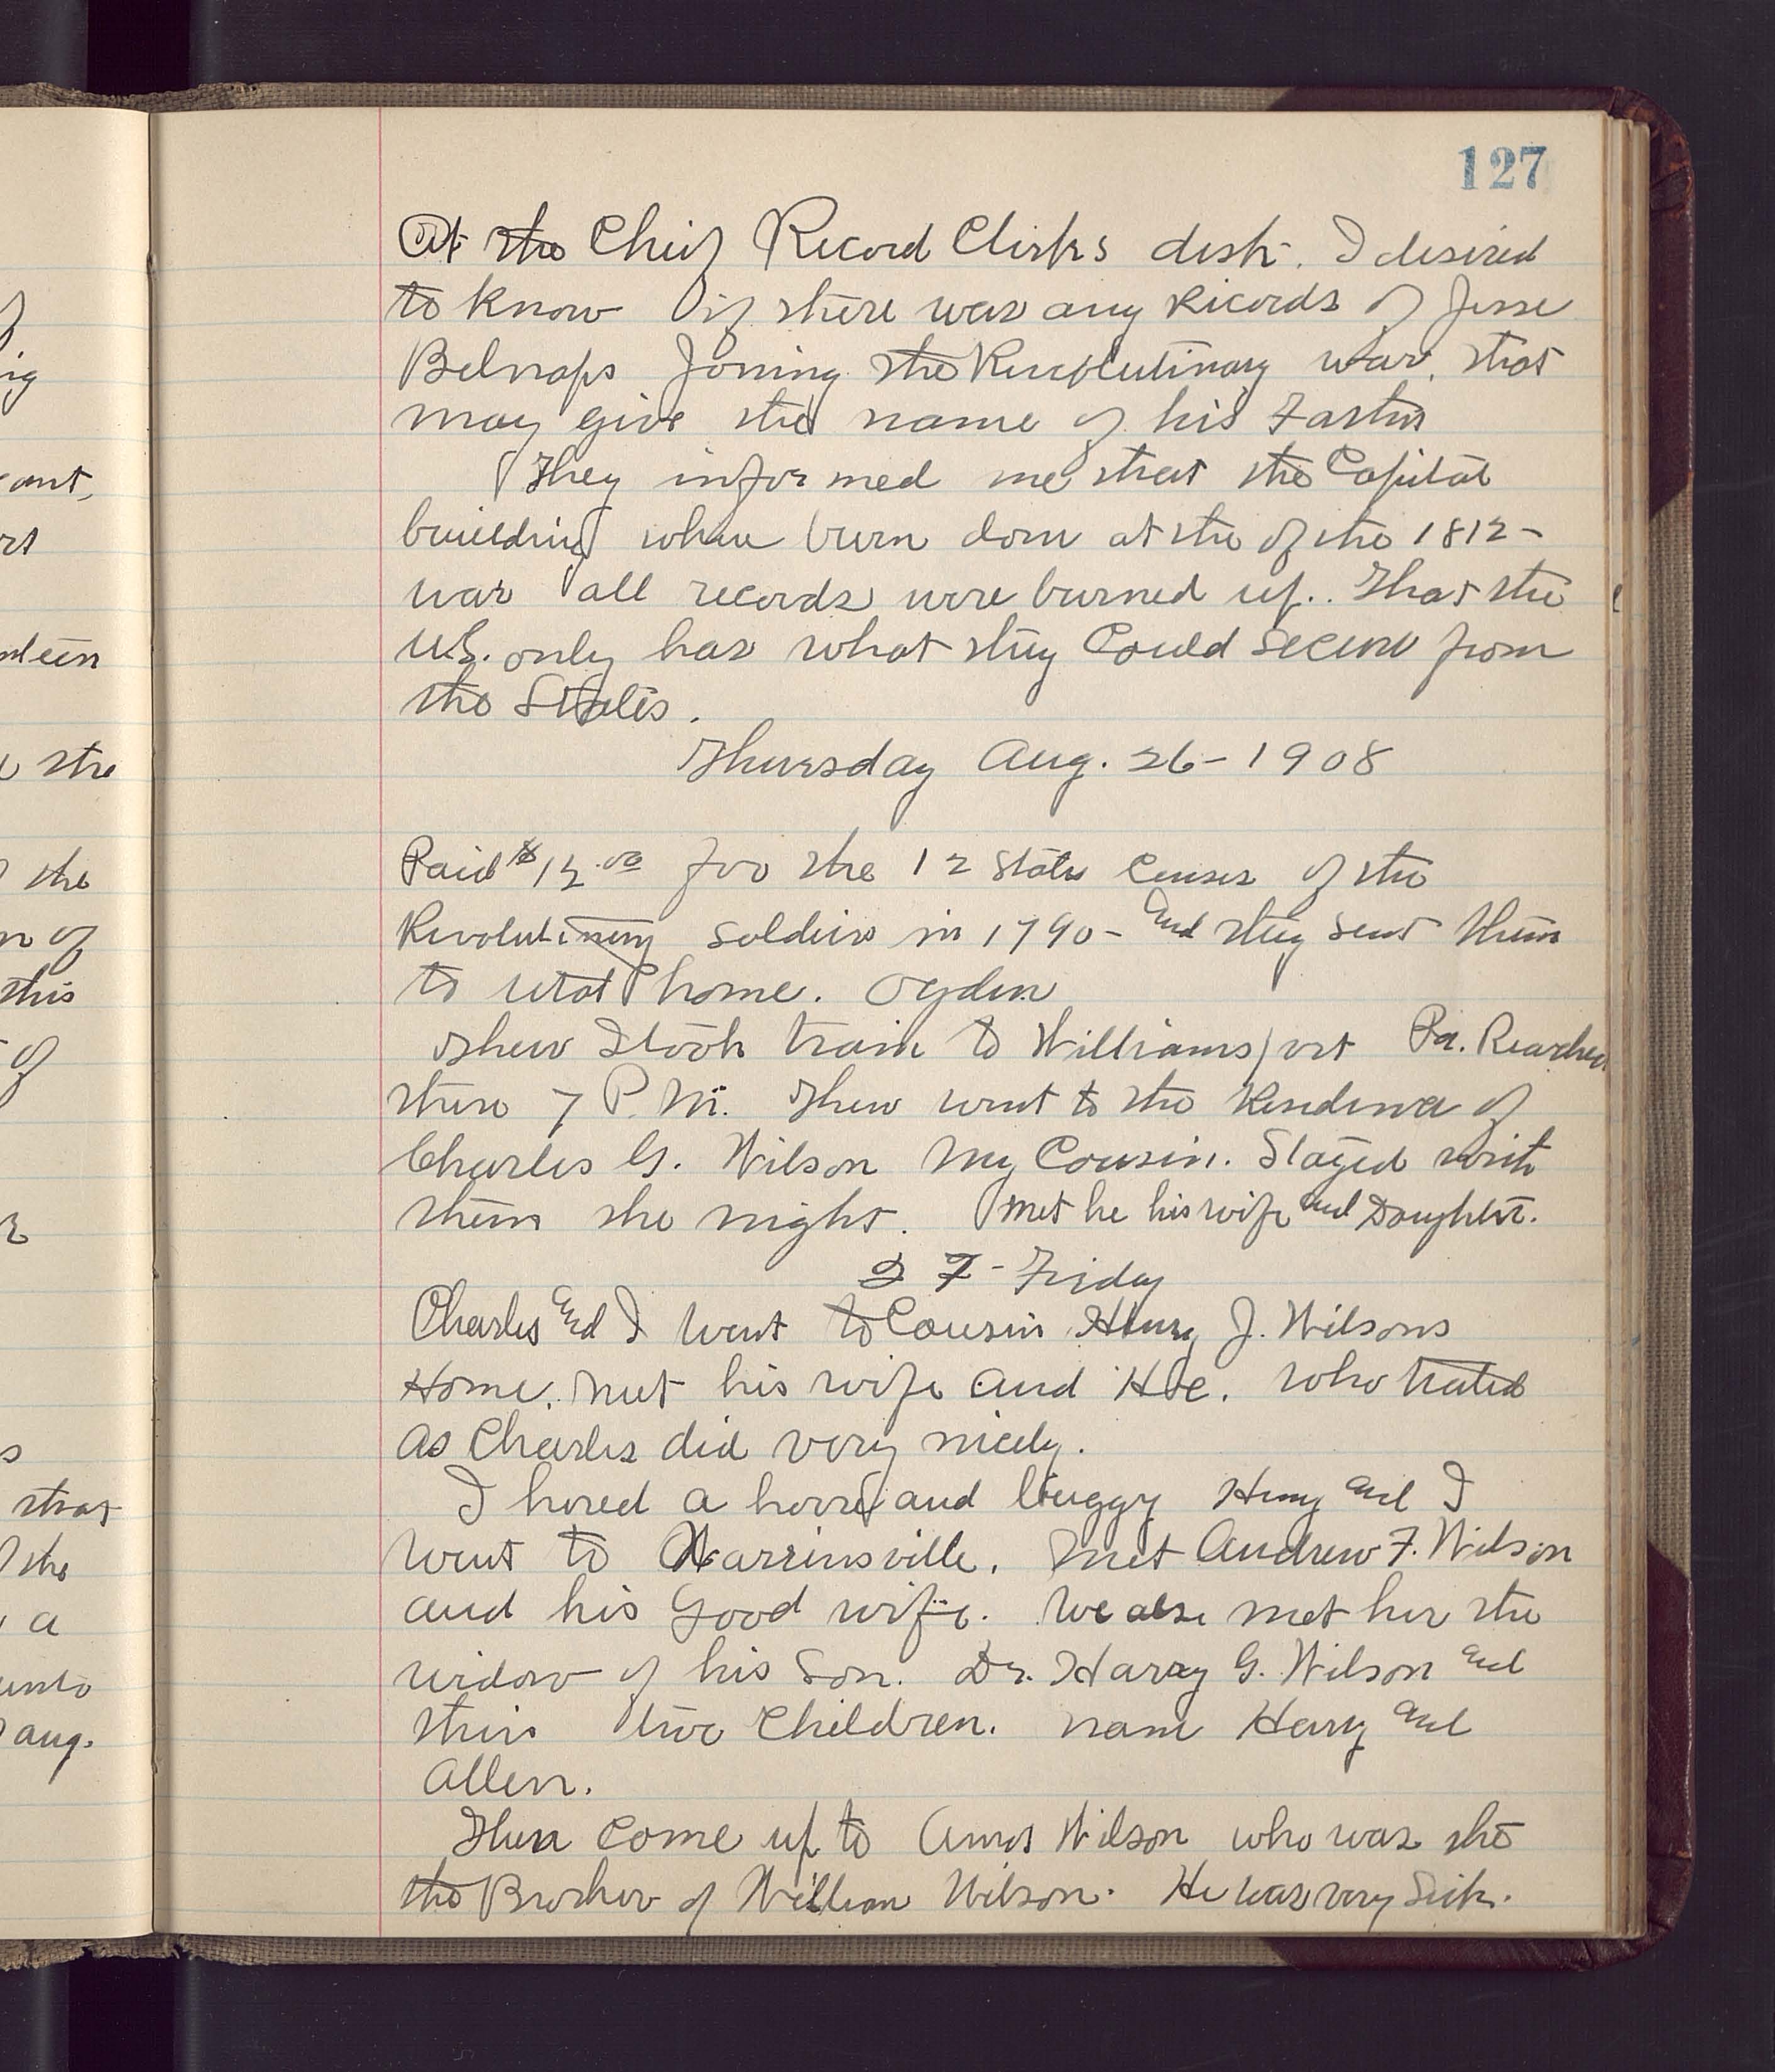 127
At the Chief Record Clerks desk. I desired
to know if there was any Records of Jesse
Belnaps Joining the Revolutinary war, that
may give the name of his Father
They informed me that the Capital
building when burn down at the of the 1812-
war all records were burned up.. That the
U.S. only has what they Could Secure from
the States.
Thursday Aug. 26-1908
Paid $12.00 for the 12 States Census of the
Revolutinary soldiers in 1790- and they sent them
to Utah home. Ogden
Then I took train to Williamsport Pa. Reached
there 7 P.M. Then went to the Residence of
Charles G. Wilson My Cousin. Stayed with
them the night. Met he his wife and Daughter.
27-Friday
Charles and I went to Cousin Henry J. Wilsons
Home. met his wife and He. who treated
as Charles did very nicely.
I hired a horse and buggy Henry and I
went to Warrinsville. met Andrew F. Wilson
and his good wife. We also met her the
widow of his Son. Dr. Harry G. Wilson and
their two Children. name Harry and
Allen.
Then come up to Amos Wilson who was the
the Brother of William Wilson. He was very Sick.
ig
ant,
rt
the
the
n of
this
of
s
that
the
a
unto
aug.